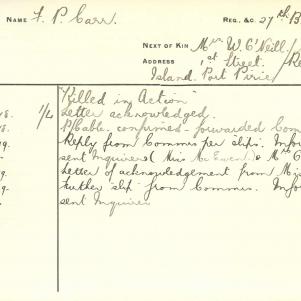 NAME F. P. Carr. REG. &c. 27th B
NEXT OF KIN Mrs W. O'Neill /
ADDRESS 1st Street. / Re
Island. Port Pirie
"Killed in Action"
8. 1/4 Letter acknowledged.
8. P/Cable. confirmes - forwarded Com
9. Reply from Commis per slips. Info
sent Inquirers (Miss McEwen) & Mrs O
9. Letter of acknowledgement from Mi
9. Further slip from Commis. Info
sent Inquirer